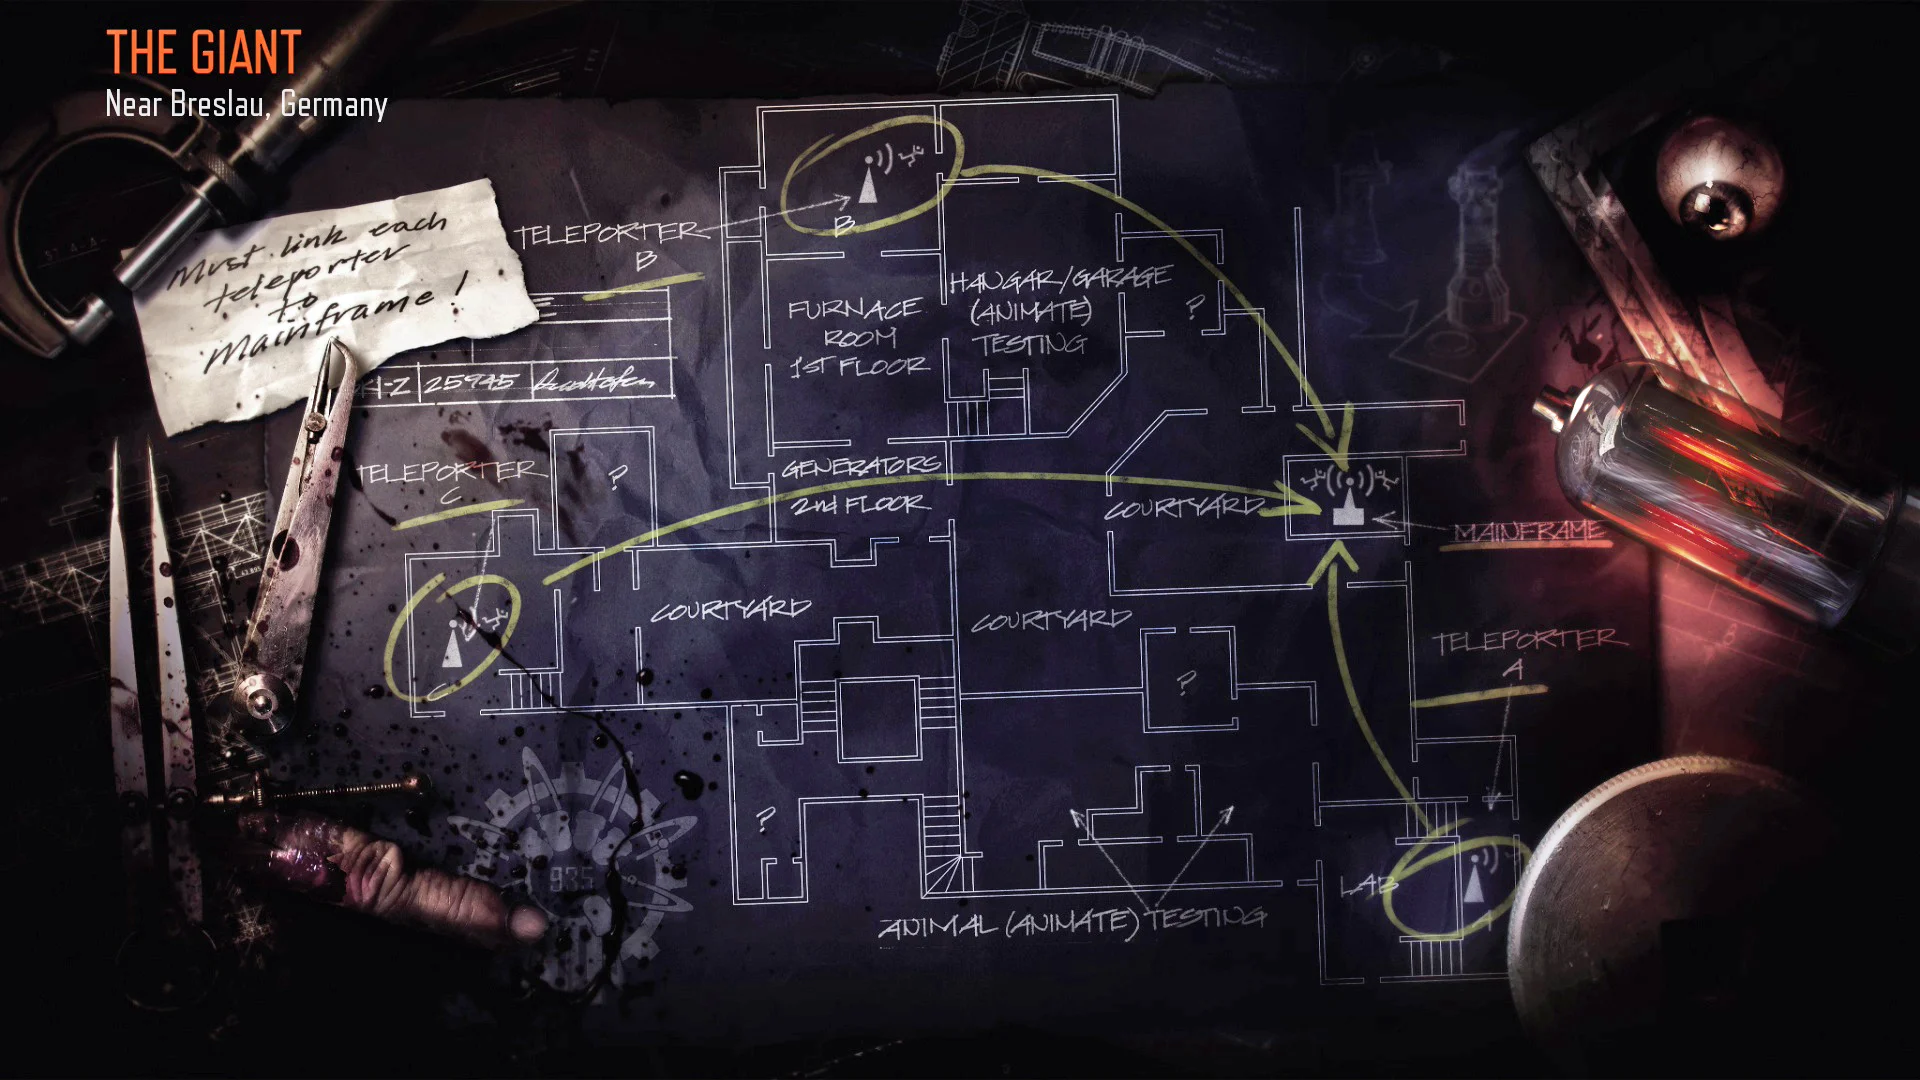 THE GIANT
Near Breslau, Germany
Must link each
teleporter
to
Mainframe!
TELEPORTER
B
B
FURNACE
ROOM
1ST FLOOR
HANGAR/GARAGE
(ANIMATE)
TESTING
?
25945
TELEPORTER
C
?
GENERATORS
2nd FLOOR
COURTYARD
MAINFRAME
C
COURTYARD
COURTYARD
?
TELEPORTER
A
?
935
LAB
A
ANIMAL (ANIMATE) TESTING